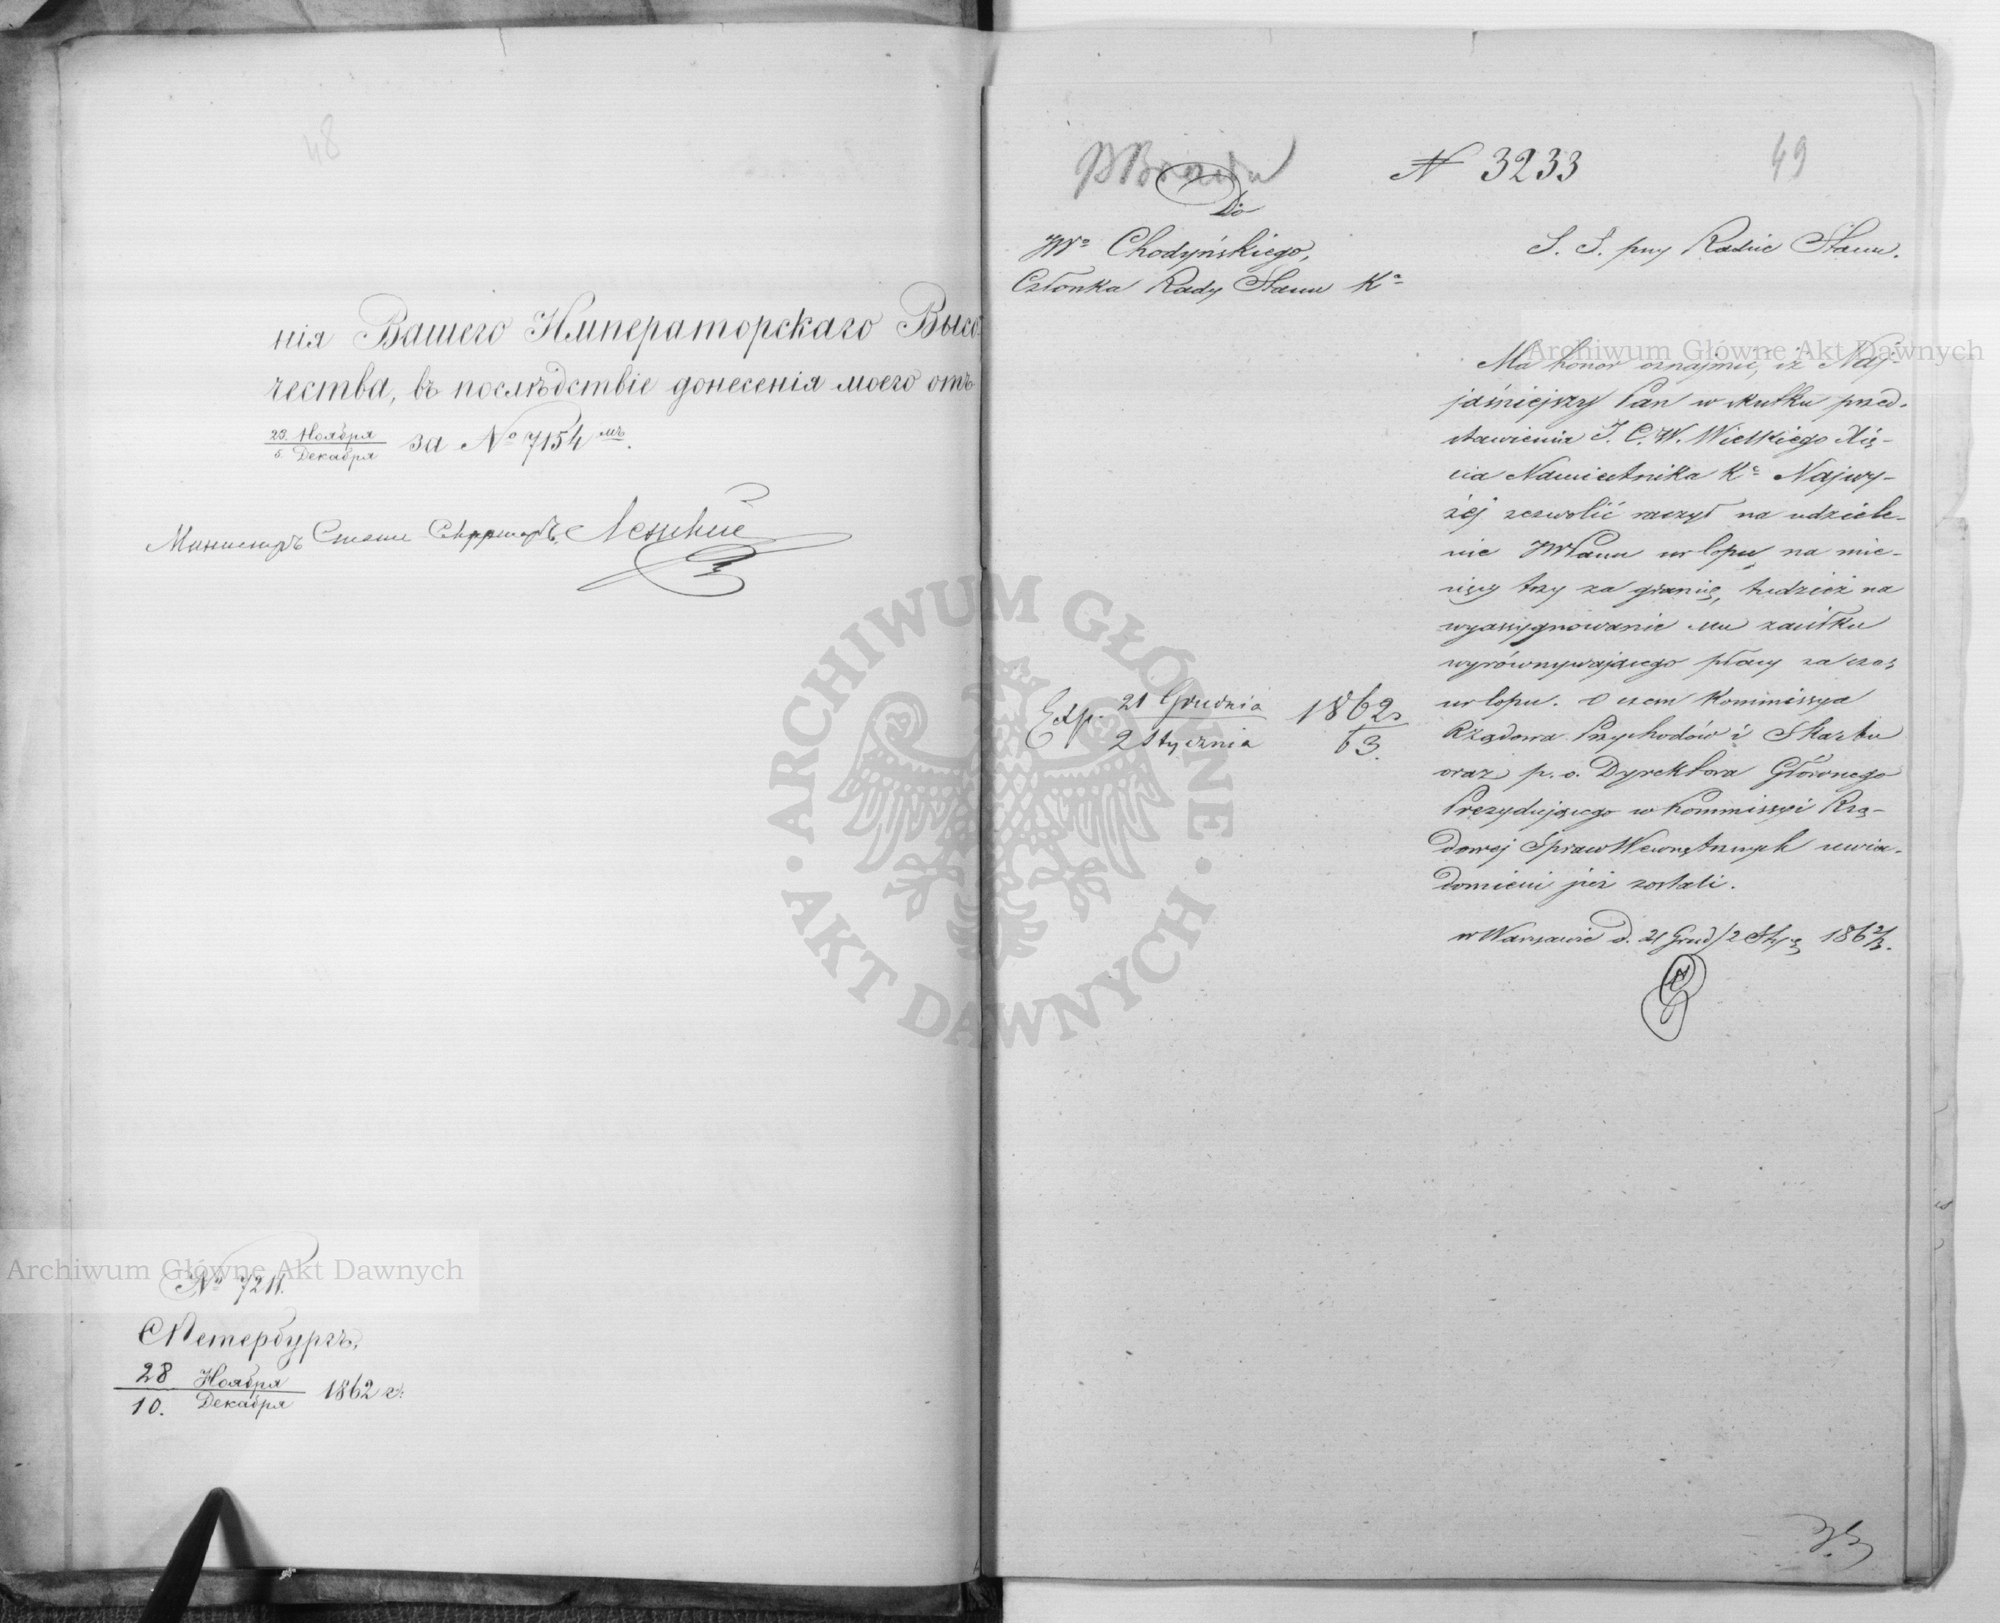 48
нія Вашего Императорскаго Высо-
чества, въ послѣдствіе донесенія моего отъ
23. Ноября
5. Декабря
за № 7154 мъ.
Министръ Статсъ Секретарь
№ 7211.
СПетербургъ,
28 Ноября
10. Декабря
1862 г.
N 3233
49
Do
JW° Chodyńskiego,
Członka Rady Stanu K°
S. S. przy Radzie Stanu.
Ma honor oznajmić, iż Naj-
jaśniejszy Pan w skutku przed-
stawienia J. C. W. Wielkiego Xię-
cia Namiestnika K° Najwy-
żej zezwolić raczył na udziele-
nie JWPanu urlopu na mie-
sięcy trzy za granicę, tudzież na
wyassygnowanie mu zasiłku
wyrównywającego płacy za czas
urlopu. O czem Kommissya
Rządowa Przychodów i Skarbu
oraz p. o. Dyrektora Głównego
Prezydującego w Kommissyi Rzą-
dowej Spraw Wewnętrznych uwia-
domieni już zostali.
w Warszawie d. 21 Grud/2 Stycz 1862/3.
Exp. 21 Grudnia 1862
2 Stycznia 63.
Archiwum Główne Akt Dawnych
Archiwum Główne Akt Dawnych
ARCHIWUM GŁÓWNE
AKT DAWNYCH